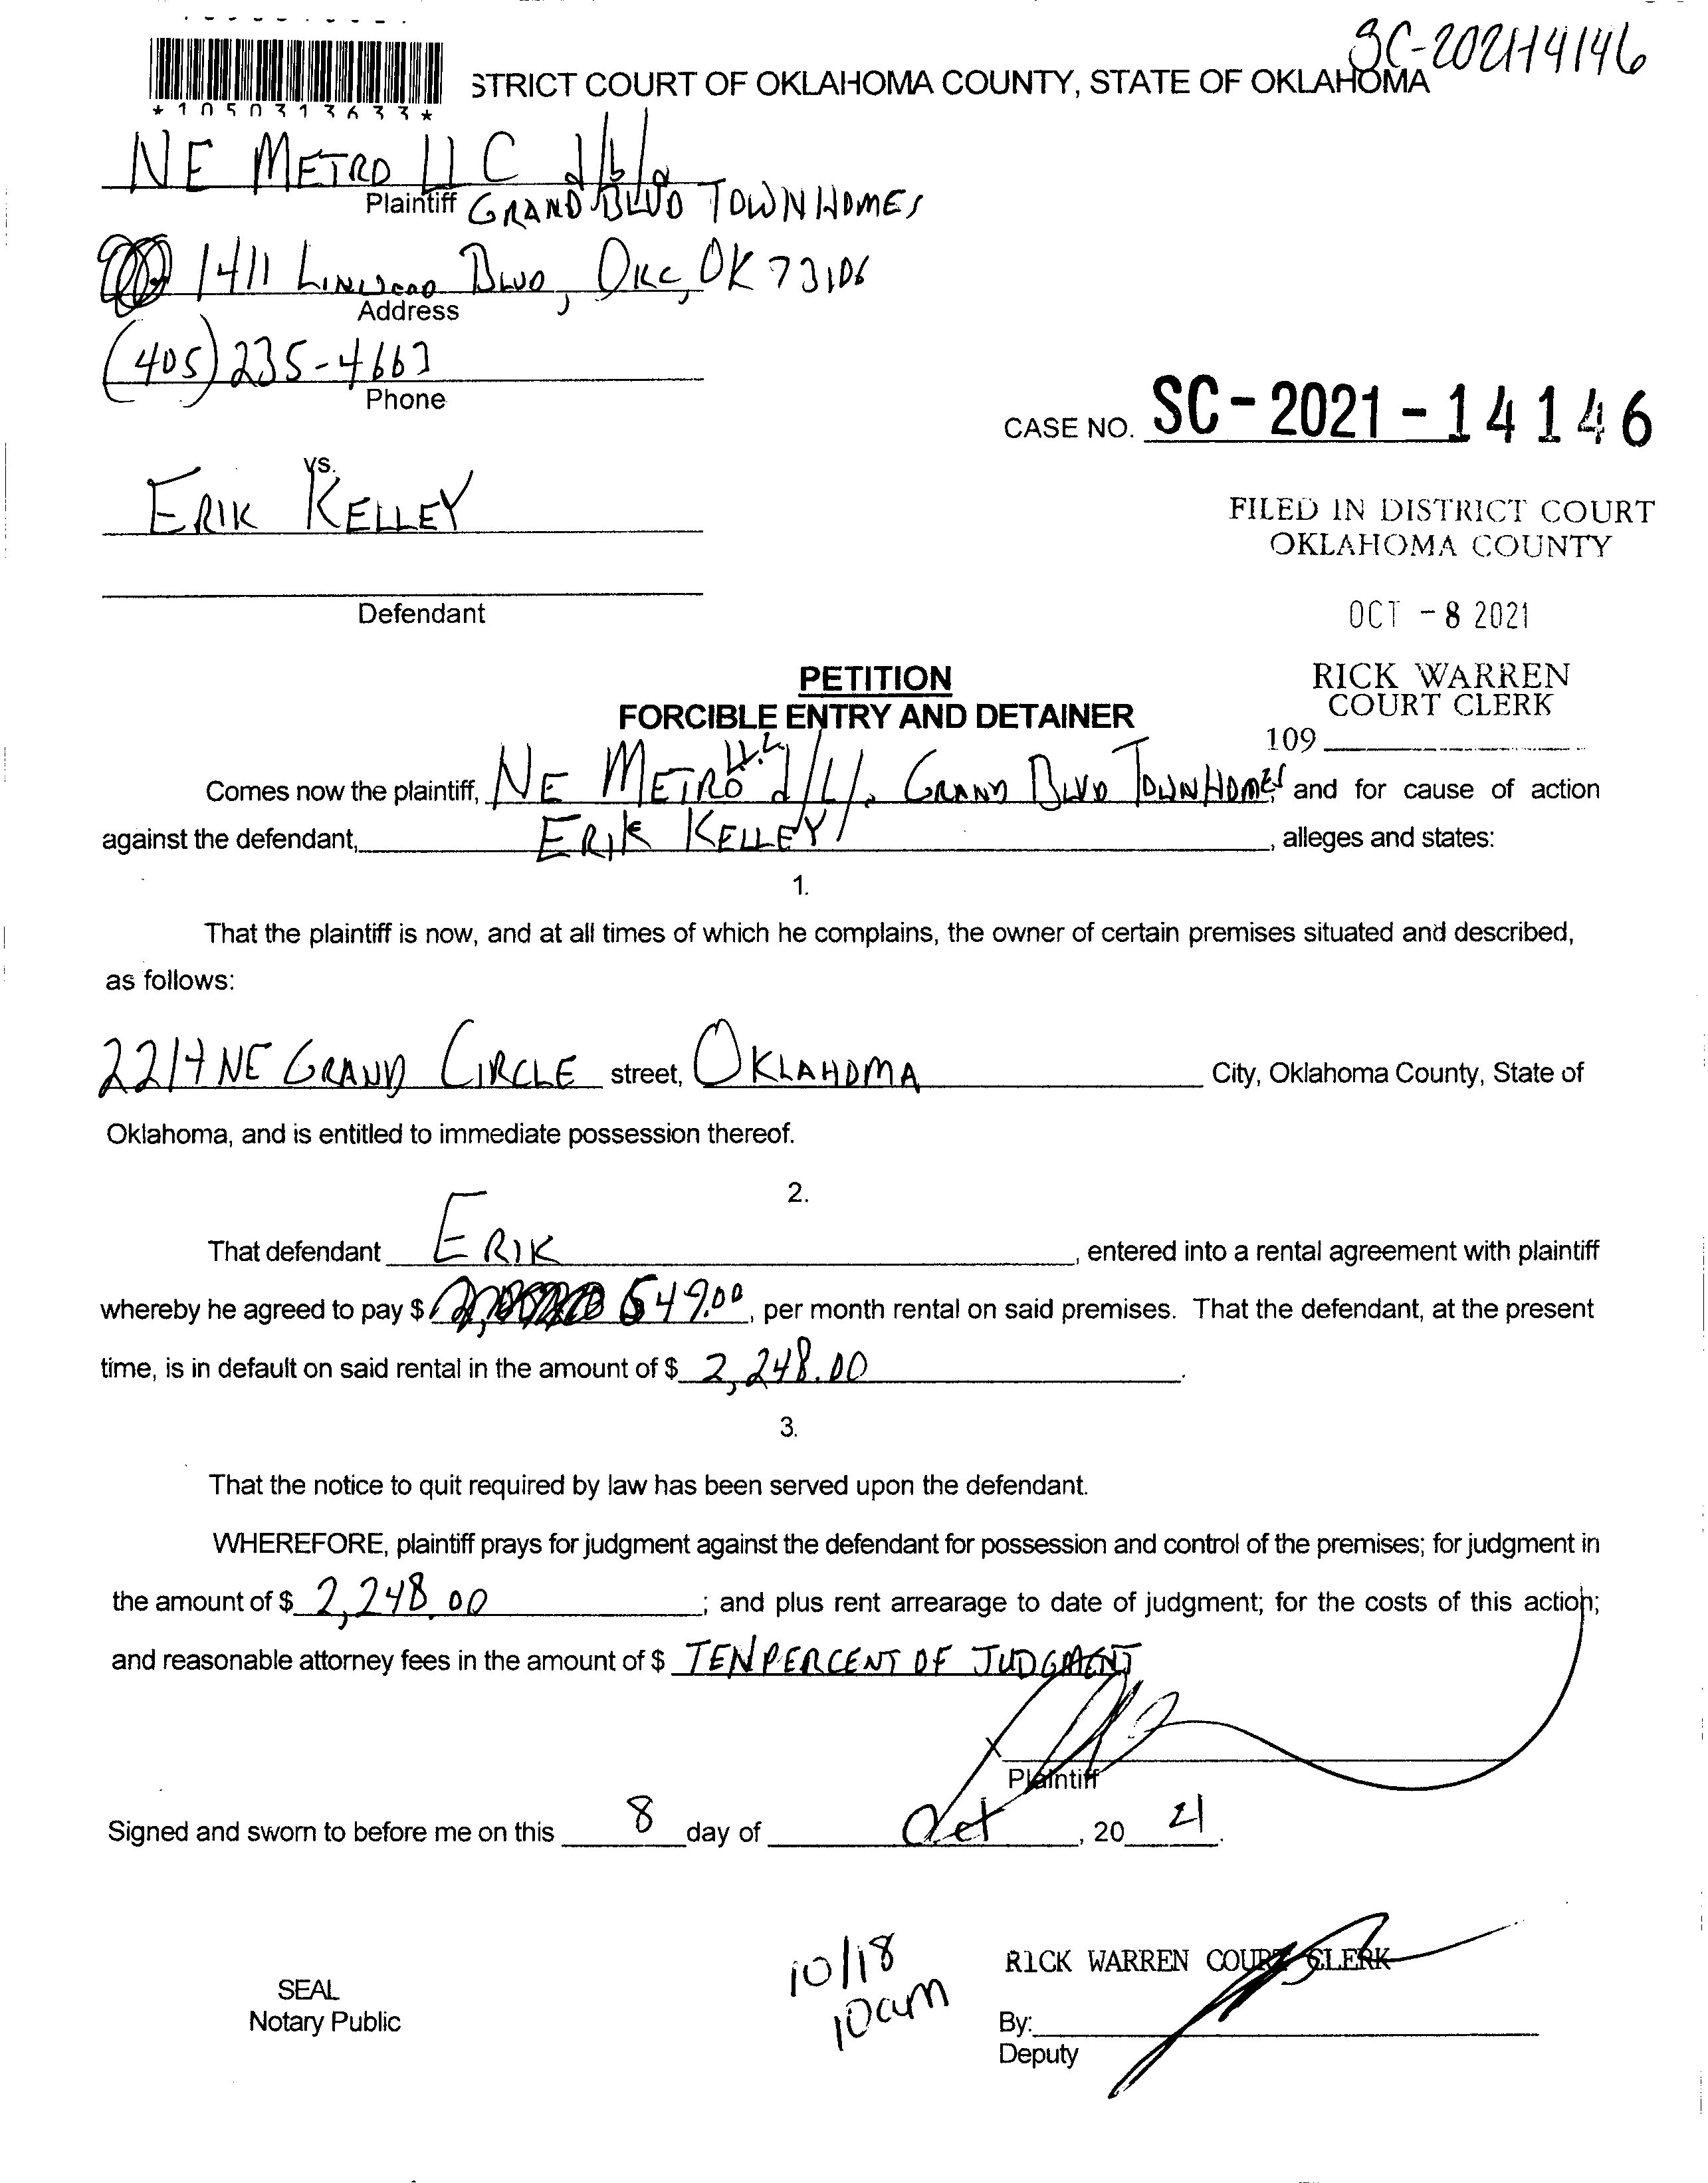 SC-2021-14146
STRICT COURT OF OKLAHOMA COUNTY, STATE OF OKLAHOMA
*1050313633*
NE METRO LLC d/b/a
Plaintiff GRAND BLVD TOWNHOMES
1411 LINWOOD BLVD, OKC, OK 73106
Address
(405) 235-4663
Phone
CASE NO. SC-2021-14146
vs.
ERIK KELLEY
FILED IN DISTRICT COURT
OKLAHOMA COUNTY
Defendant
OCT -8 2021
PETITION
RICK WARREN
COURT CLERK
FORCIBLE ENTRY AND DETAINER
109
Comes now the plaintiff, NE METRO LLC d/b/a GRAND BLVD TOWNHOMES and for cause of action
against the defendant, ERIK KELLEY, alleges and states:
1.
That the plaintiff is now, and at all times of which he complains, the owner of certain premises situated and described,
as follows:
2214 NE GRAND CIRCLE street, OKLAHOMA City, Oklahoma County, State of
Oklahoma, and is entitled to immediate possession thereof.
2.
That defendant ERIK, entered into a rental agreement with plaintiff
whereby he agreed to pay $ 649.00, per month rental on said premises. That the defendant, at the present
time, is in default on said rental in the amount of $ 2,248.00.
3.
That the notice to quit required by law has been served upon the defendant.
WHEREFORE, plaintiff prays for judgment against the defendant for possession and control of the premises; for judgment in
the amount of $ 2,248.00; and plus rent arrearage to date of judgment; for the costs of this action;
and reasonable attorney fees in the amount of $ TEN PERCENT OF JUDGMENT
X
Plaintiff
Signed and sworn to before me on this 8 day of Oct, 20 21.
10/18
10am
RICK WARREN COURT CLERK
SEAL
Notary Public
By:
Deputy